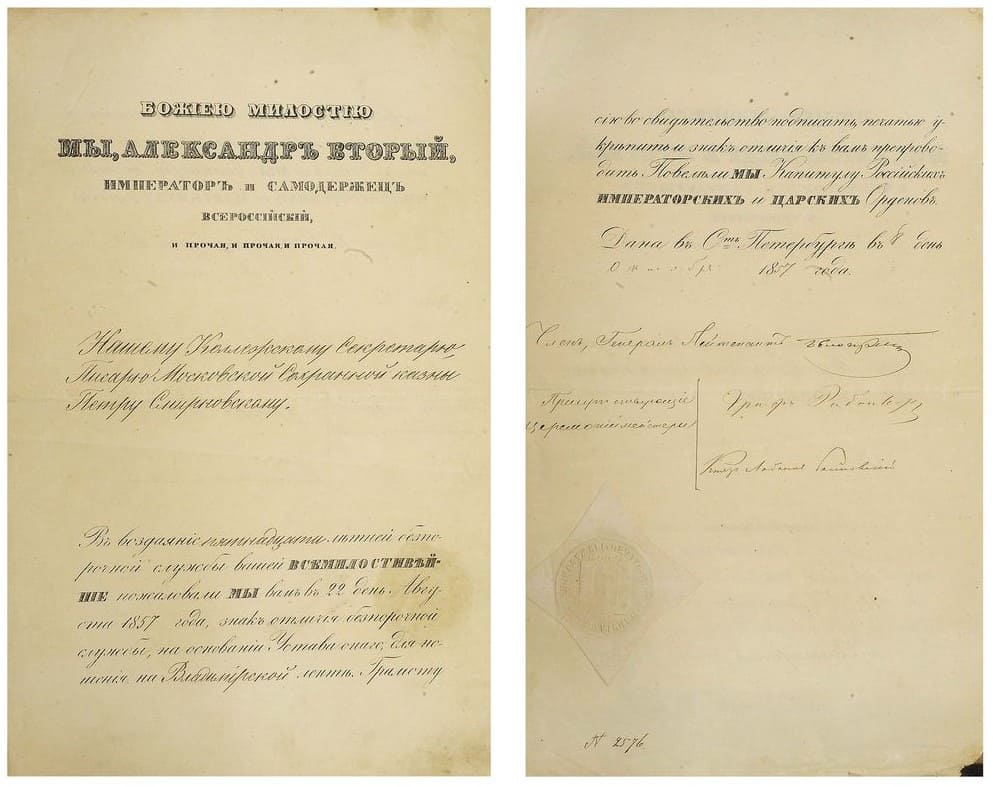 БОЖІЕЮ МИЛОСТІЮ
МЫ, АЛЕКСАНДРЪ ВТОРЫЙ,
ИМПЕРАТОРЪ и САМОДЕРЖЕЦЪ
ВСЕРОССІЙСКІЙ,
И ПРОЧАЯ, И ПРОЧАЯ, И ПРОЧАЯ.
Нашему Коллежскому Секретарю,
Писарю Московской Сохранной казны
Петру Смирновскому.
Въ воздаяніе пятнадцати лѣтней безпо-
рочной службы вашей ВСЕМИЛОСТИВѢЙ-
ШЕ пожаловали МЫ вамъ въ 22 день Авгу-
ста 1857 года, знакъ отличія безпорочной
службы, на основаніи Устава онаго, для но-
шенія на Владимірской лентѣ. Грамоту
сію во свидѣтельство подписать, печатью у-
крѣпить и знакъ отличія къ вамъ препрово-
дить Повелѣли МЫ Капитулу Россійскихъ
ИМПЕРАТОРСКИХЪ и ЦАРСКИХЪ Орденовъ.
Дана въ Стъ. Петербургѣ въ 8 день
Октября 1857 года.
Членъ, Генералъ Лейтенантъ
Присутствующіе
Церемоніймейстеры
Графъ
Князь
N 2576